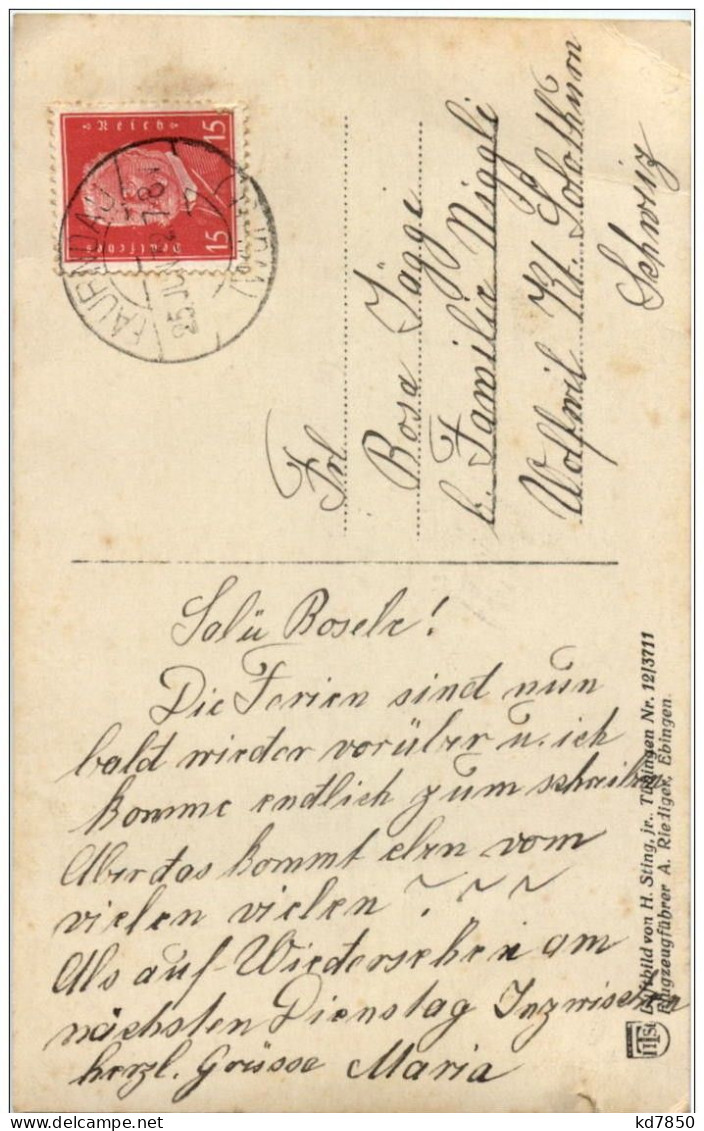 Deutsches
Reich
15
15
FAURNDAU
25 JUN
7-8
Frl.
Rosa Jäggi
b. Familie Niggli
Wolfwil Kt. Solothurn
Schweiz
Salü Rosele!
Die Ferien sind nun
bald wieder vorüber u. ich
komme endlich zum schreiben
Aber das kommt eben vom
vielen vielen ? ~ ~ ~
Als auf-Wiedersehen am
nächsten Dienstag Inzwischen
herzl. Grüsse Maria
Luftbild von H. Sting, jr., Tübingen Nr. 12/3711
Flugzeugführer A. Riediger, Ebingen.
kd7850